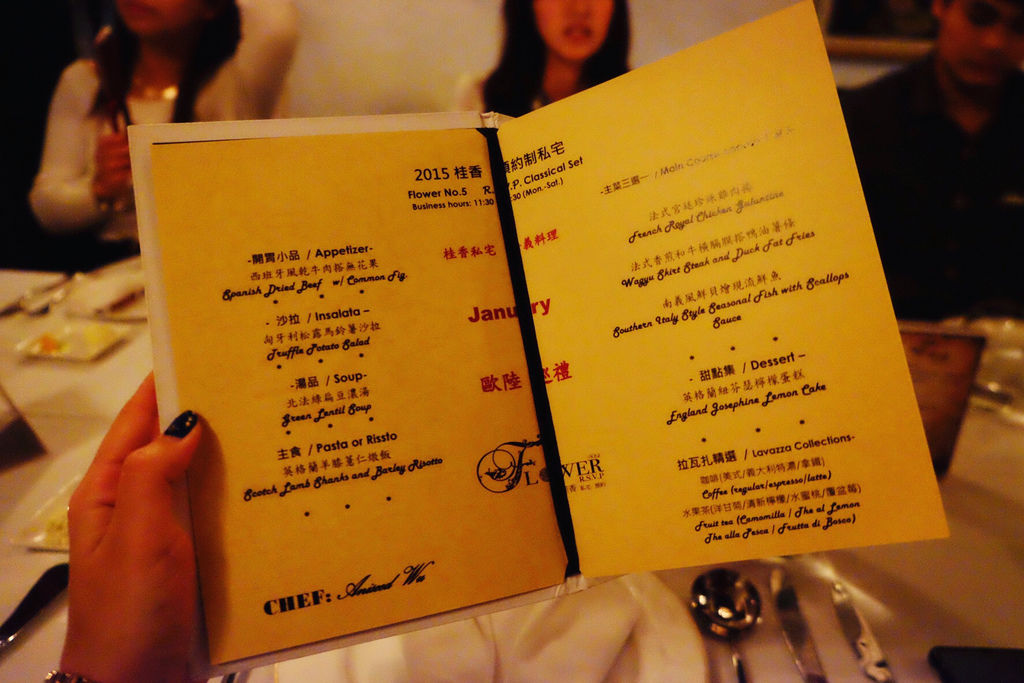 2015 桂香 預約制私宅
Flower No.5 R. V.P. Classical Set
Business hours: 11:30 :30 (Mon.-Sat.)
桂香私宅 義料理
January
歐陸 巡禮
-開胃小品 / Appetizer-
西班牙風乾牛肉搭無花果
Spanish Dried Beef w/ Common Fig.
- 沙拉 / Insalata –
匈牙利松露馬鈴薯沙拉
Truffle Potato Salad
-湯品 / Soup-
北法綠扁豆濃湯
Green Lentil Soup
主食 / Pasta or Rissto
英格蘭羊膝薏仁燉飯
Scotch Lamb Shanks and Barley Risotto
CHEF:
FLOWER
R.S.V.P
-主菜三選一 / Main Course
法式宮廷珍珠雞肉捲
French Royal Chicken Galantine
法式香煎和牛橫膈膜搭鴨油薯條
Wagyu Skirt Steak and Duck Fat Fries
南義風鮮貝燴現流鮮魚
Southern Italy Style Seasonal Fish with Scallops
Sauce
- 甜點集 / Dessert –
英格蘭紐芬瑟檸檬蛋糕
England Josephine Lemon Cake
拉瓦扎精選 / Lavazza Collections-
咖啡(美式/義大利特濃/拿鐵)
Coffee (regular/espresso/latte)
水果茶(洋甘菊/清新檸檬/水蜜桃/覆盆莓)
Fruit tea (Camomilla / The al Lemon
The alla Pesca / Frutta di Bosco)